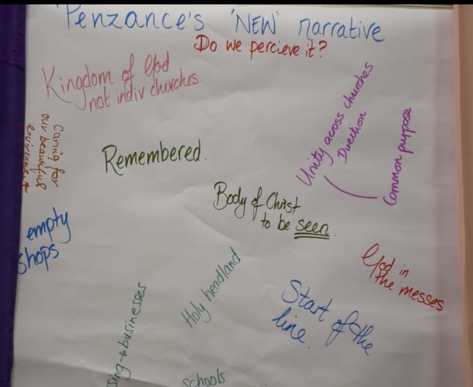 Penzance's 'NEW' narrative
Do we percieve it?
Kingdom of God
not indiv churches
Unity across churches
Direction
Common purpose
Caring for
our beautiful
Remembered.
Body of Christ
to be seen.
empty
shops
God in
the messes
Holy headland
Start of the
line.
businesses
schools